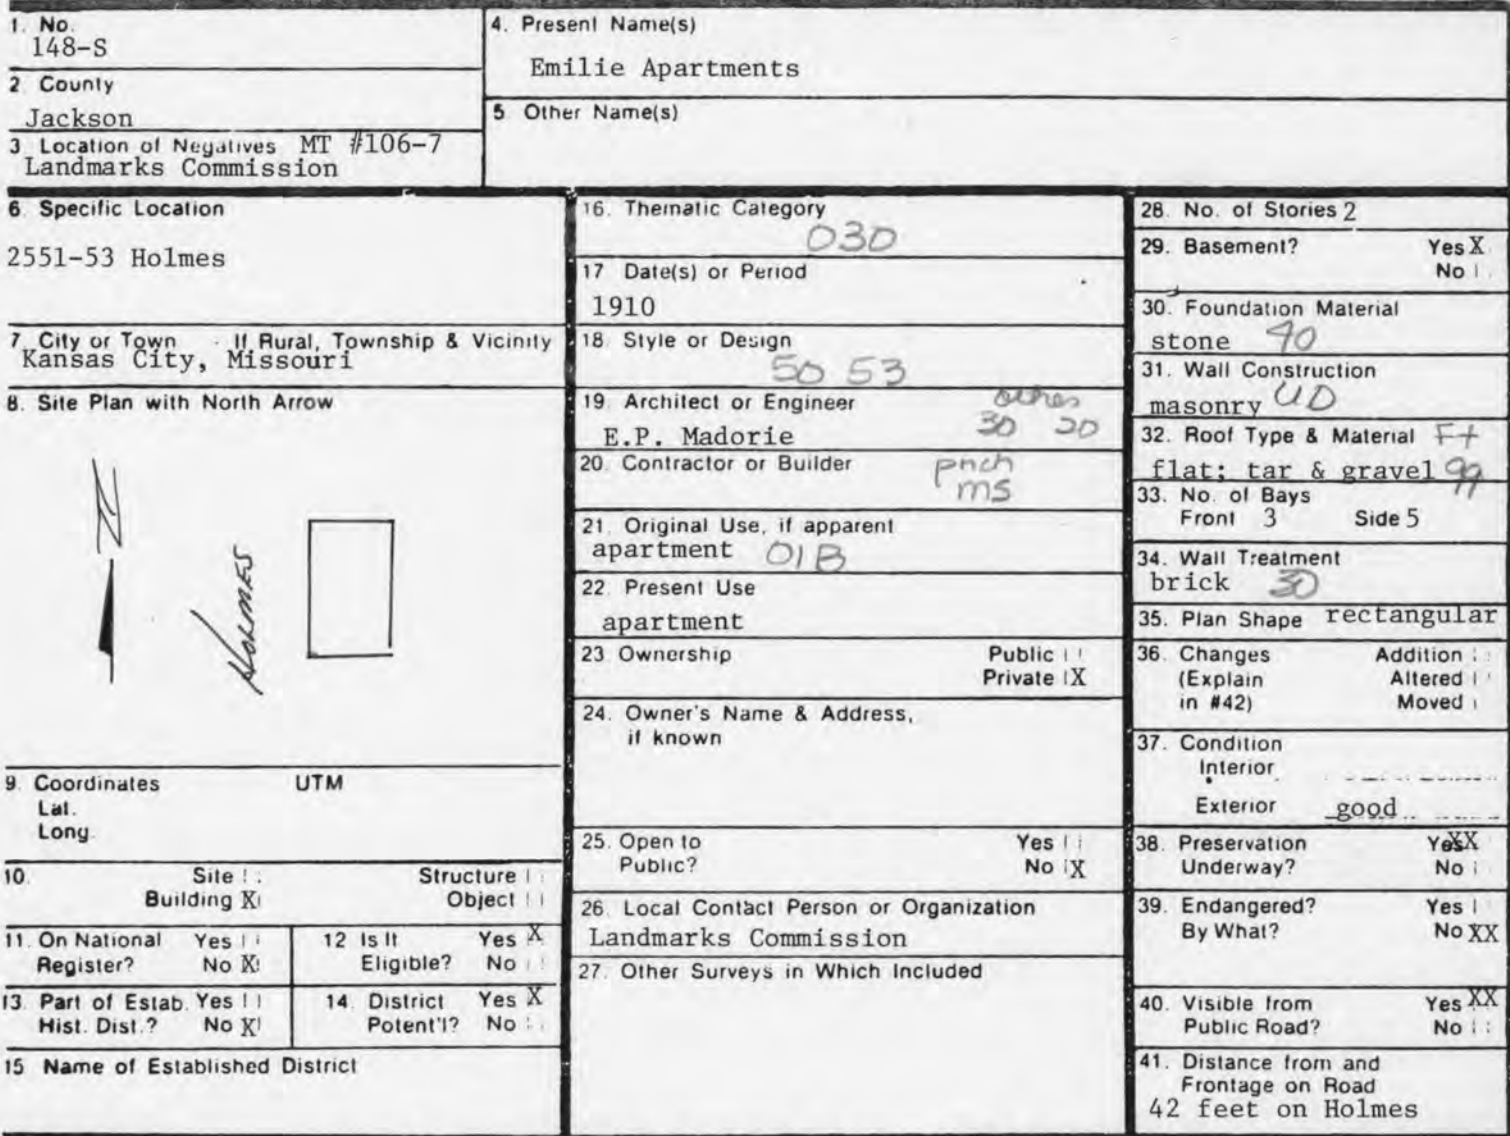 1. No.
148-S
2. County
Jackson
3. Location of Negatives MT #106-7
Landmarks Commission
4. Present Name(s)
Emilie Apartments
5. Other Name(s)
6. Specific Location
2551-53 Holmes
7. City or Town If Rural, Township & Vicinity
Kansas City, Missouri
8. Site Plan with North Arrow
N
Holmes
9. Coordinates UTM
Lat.
Long.
10. Site Structure
Building X Object
11. On National Yes
Register? No X
12 Is It Yes X
Eligible? No
13. Part of Estab. Yes
Hist. Dist.? No X
14. District Yes X
Potent'l? No
15 Name of Established District
16. Thematic Category
030
17 Date(s) or Period
1910
18. Style or Design
50 53
19. Architect or Engineer
E.P. Madorie 30 20
20. Contractor or Builder
MS
21. Original Use, if apparent
apartment 01B
22. Present Use
apartment
23 Ownership Public
Private X
24. Owner's Name & Address,
if known
25. Open to Yes
Public? No X
26. Local Contact Person or Organization
Landmarks Commission
27. Other Surveys in Which Included
28. No. of Stories 2
29. Basement? Yes X
No
30. Foundation Material
stone 40
31. Wall Construction
masonry UD
32. Roof Type & Material Ft
flat; tar & gravel 99
33. No. of Bays
Front 3 Side 5
34. Wall Treatment
brick 30
35. Plan Shape rectangular
36. Changes Addition
(Explain Altered
in #42) Moved
37. Condition
Interior
Exterior good
38. Preservation Yes XX
Underway? No
39. Endangered? Yes
By What? No XX
40. Visible from Yes XX
Public Road? No
41. Distance from and
Frontage on Road
42 feet on Holmes